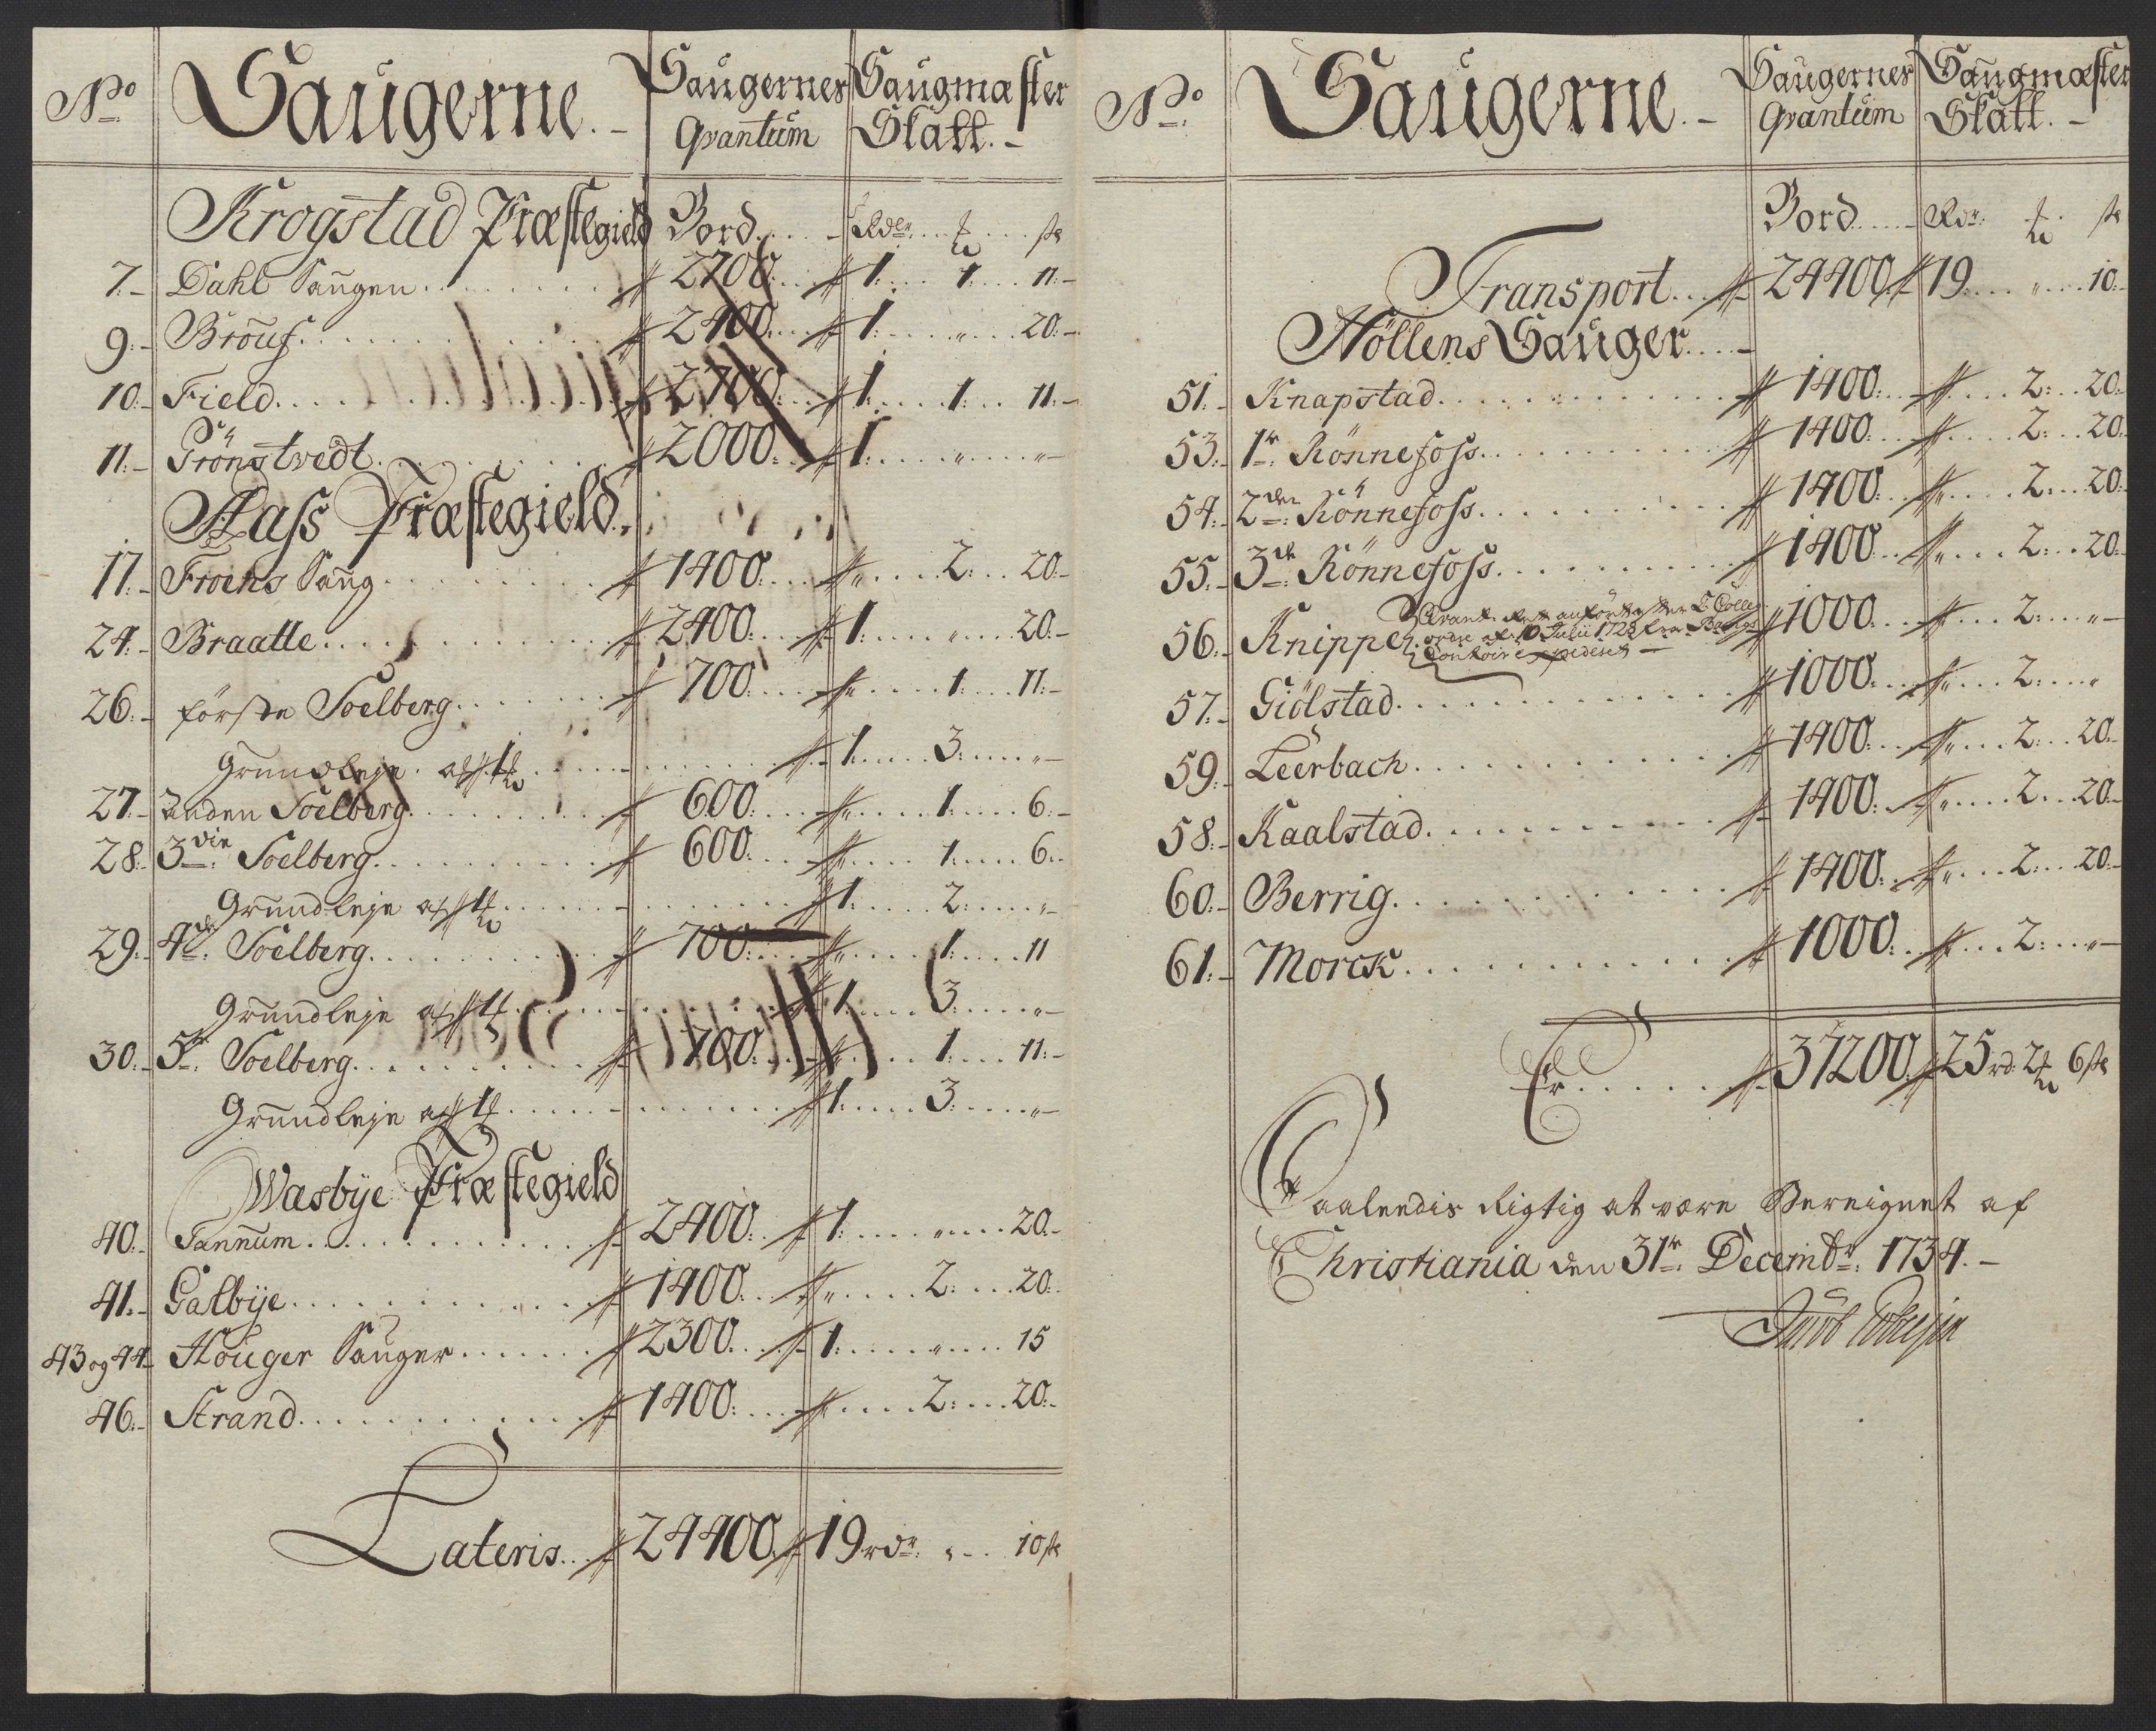 No Saugerne. Saugernes Qvantum Saugmæster Skatt.
Krogstad Præstegield Bord Rdr ort sk
7. Dahl Saugen 2700 1 1 11
9. Brouf 2400 1 " 20
10. Field 2700 1 1 11
11. Grönstvedt 2000 1 " "
Aass Præstegield
17. Froens Saug 1400 " 2 20
24. Braatte 2400 1 " 20
26. förste Soelberg 700 " 1 11
Grundleje aff 1 1 3 "
27. anden Soelberg 600 " 1 6
28. 3die Soelberg 600 " 1 6
Grundleje aff 1 1 2 "
29. 4de Soelberg 700 " 1 11
Grundleje aff 1 1 3 "
30. 5te Soelberg 700 " 1 11
Grundleje aff 1 1 3 "
Wæsbye Præstegield
40. Sannum 2400 1 " 20
41. Galbye 1400 " 2 20
43 og 44 Houger Sauger 2300 1 " 15
46. Strand 1400 " 2 20
Lateris 24400 19 rdr " 10 sk
No Saugerne. Saugernes Qvantum Saugmæster Skatt.
Bord Rdr ort sk
Transport 24400 19 " 10
Höllens Sauger
51. Knapstad 1400 2 20
53. 1te Rönnefoss 1400 2 20
54. 2den Rönnefoss 1400 " 2 20
55. 3de Rönnefoss 1400 " 2 20
56. Knipper 1000 2 "
ordre af 10 Julii 1728
57. Giölstad 1000 " 2 "
59. Leerbach 1400 " 2 20
58. Kaalstad 1400 " 2 20
60. Berrig 1400 " 2 20
61. Morck 1000 2 "
Er 37200 25 rd 2 ort 6 sk
Saaledis Rigtig at være Bereignet af
Christiania den 31te Decembr: 1734.